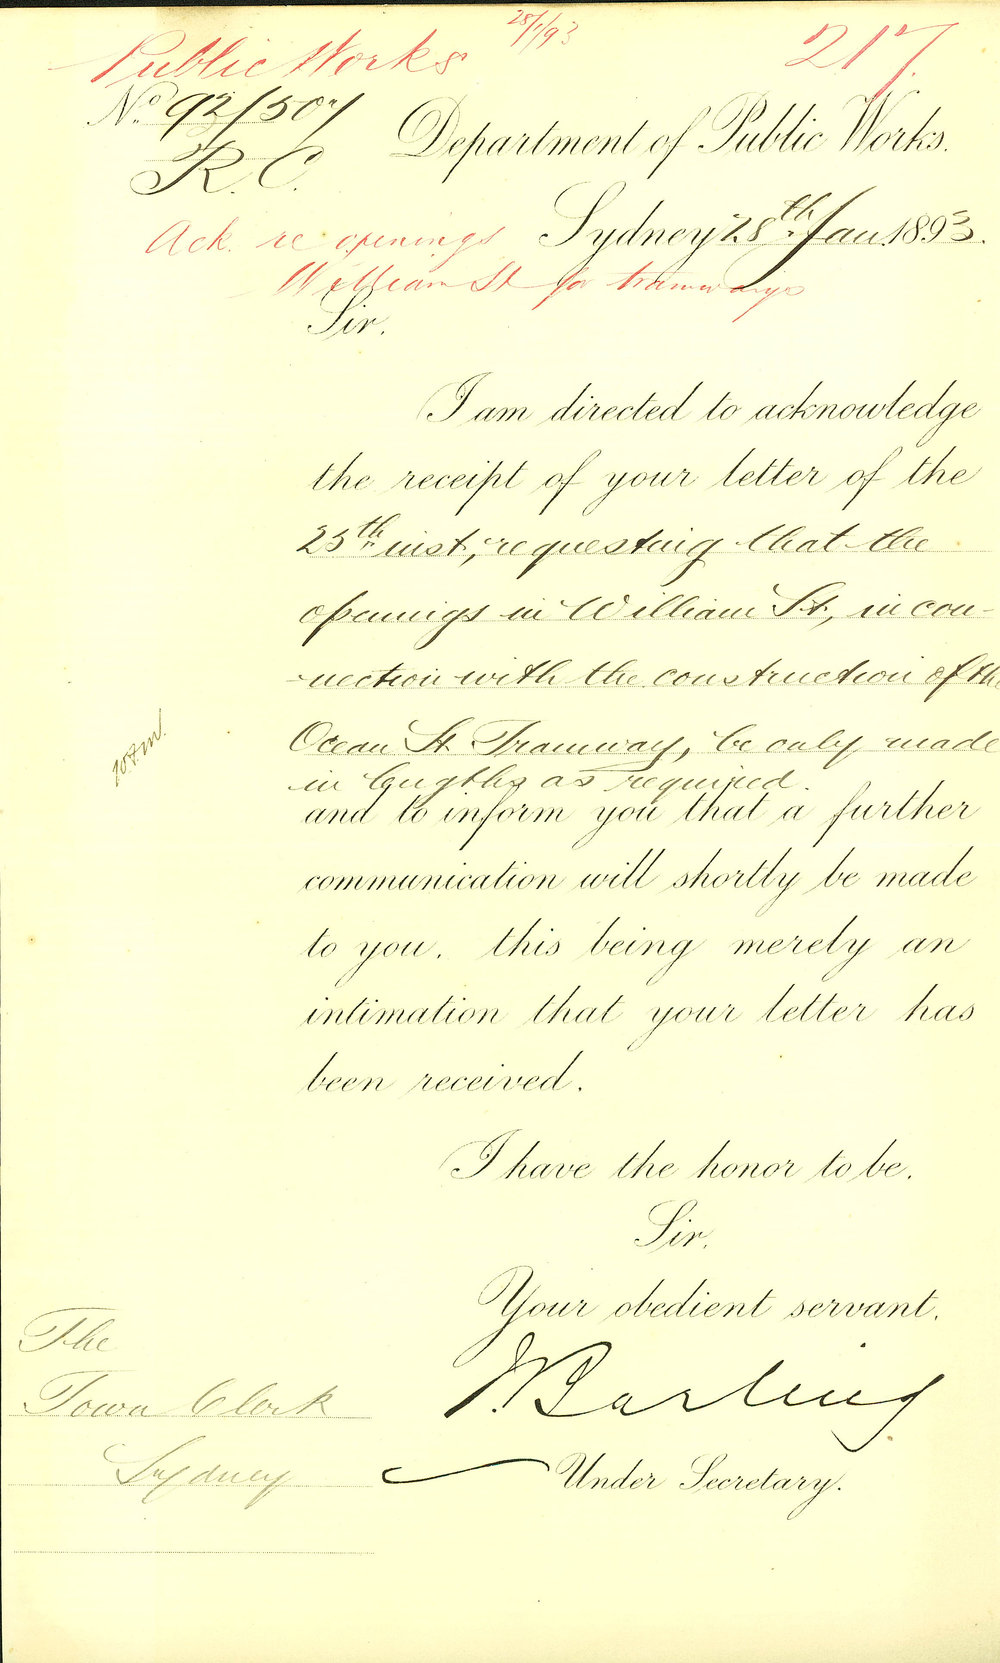 28/1/93
Public Works
217.
No. 92/507
R. C.
Department of Public Works.
Sydney 28th Jan. 1893.
Ack. re openings
William St for tramways
Sir.
I am directed to acknowledge
the receipt of your letter of the
25th inst, requesting that the
openings in William St, in con-
-nection with the construction of the
Ocean St Tramway, be only made
in lengths as required.
and to inform you that a further
communication will shortly be made
to you. this being merely an
intimation that your letter has
been received.
I have the honor to be.
Sir.
Your obedient servant.
J. Barling
Under Secretary.
The
Town Clerk
Sydney